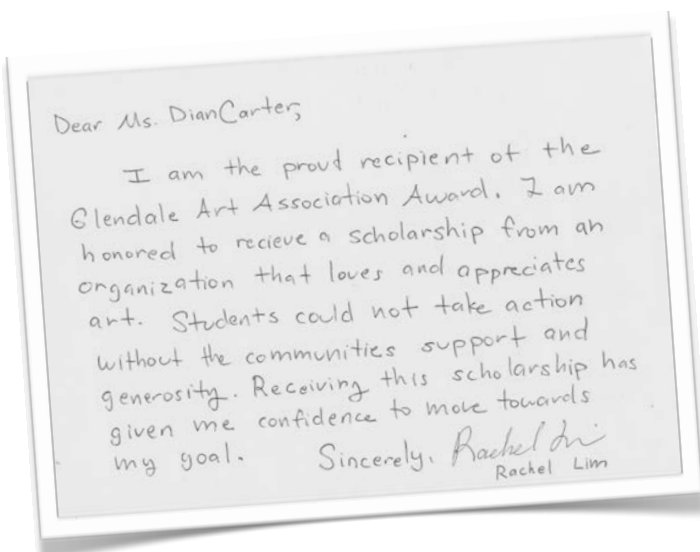 Dear Ms. Dian Carter,
I am the proud recipient of the
Glendale Art Association Award. I am
honored to recieve a scholarship from an
organization that loves and appreciates
art. Students could not take action
without the communities support and
generosity. Receiving this scholarship has
given me confidence to move towards
my goal. Sincerely, Rachel Lim
Rachel Lim